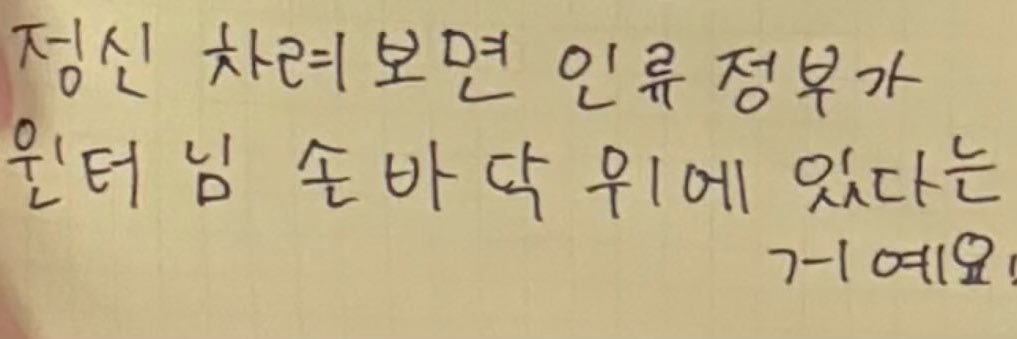 정신 차려보면 인류 정부가
윈터 님 손바닥 위에 있다는
거예요!